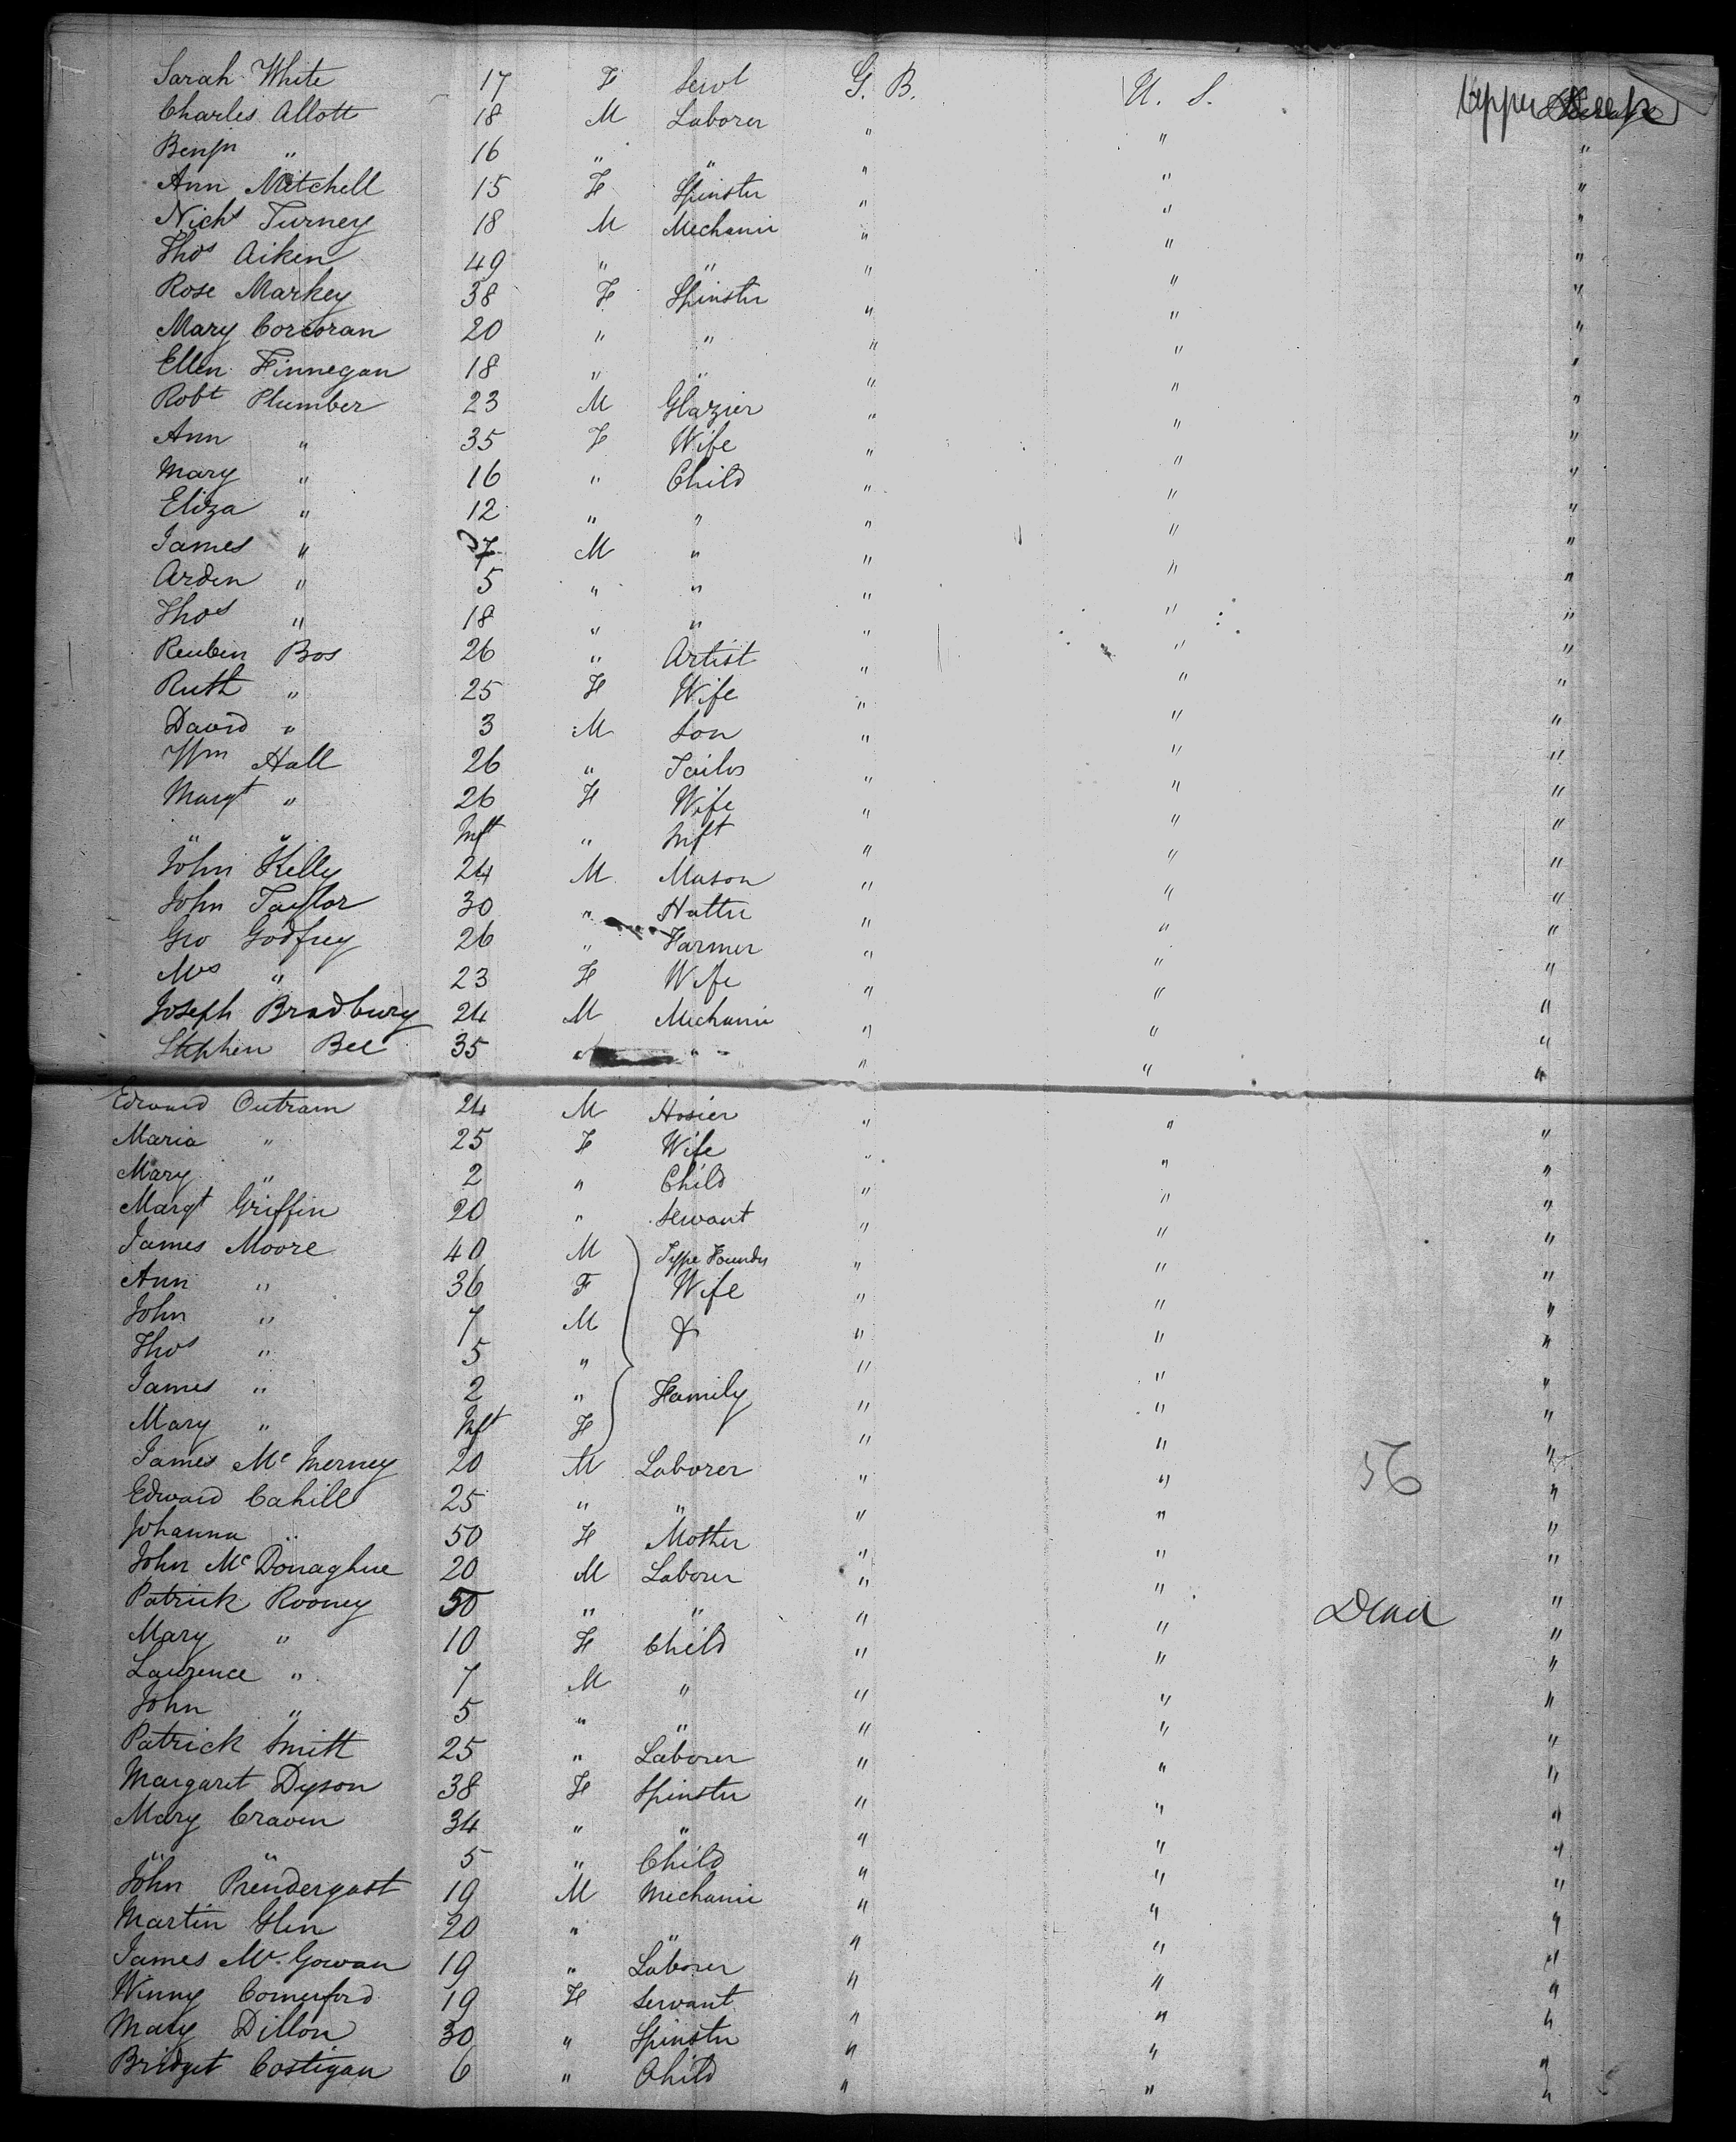 Sarah White 17 F Servt G. B. U. S. Upper
Charles Allott 18 M Laborer " " "
Benjn " 16 " " " " "
Ann Mitchell 15 F Spinster " " "
Nichs Turney 18 M Mechanic " " "
Thos Aiken 49 " " " " "
Rose Markey 38 F Spinster " " "
Mary Corcoran 20 " " " " "
Ellen Finnegan 18 " " " " "
Robt Plumber 23 M Glazier " " "
Ann " 35 F Wife " " "
Mary " 16 " Child " " "
Eliza " 12 " " " " "
James " 7 M " " " "
Arden " 5 " " " " "
Thos " 18 " " " " "
Reuben Bos 26 " Artist " " "
Ruth " 25 F Wife " " "
David " 3 M Son " " "
Wm Hall 26 " Tailor " " "
Margt " 26 F Wife " " "
" " Inft " Inft " " "
John Kelly 24 M Mason " " "
John Taylor 30 " Hatter " " "
Geo Godfrey 26 " Farmer " " "
Mrs " 23 F Wife " " "
Joseph Bradbury 24 M Mechanic " " "
Stephen Bee 35 " " " " "
Edward Outram 24 M Hosier " " "
Maria " 25 F Wife " " "
Mary " 2 " Child " " "
Margt Griffin 20 " Servant " " "
James Moore 40 M Type Founder " " "
Ann " 36 F Wife " " "
John " 7 M & " " "
Thos " 5 " " " "
James " 2 " Family " " "
Mary " Inft F " " "
James McInerney 20 M Laborer " " 56 "
Edward Cahill 25 " " " " "
Johanna " 50 F Mother " " "
John McDonaghue 20 M Laborer " " "
Patrick Rooney 50 " " " " Dead "
Mary " 10 F Child " " "
Laurence " 7 M " " " "
John " 5 " " " " "
Patrick Smith 25 " Laborer " " "
Margaret Dyson 38 F Spinster " " "
Mary Craven 34 " " " " "
" " 5 " Child " " "
John Prendergast 19 M Mechanic " " "
Martin Glen 20 " " " " "
James McGowan 19 " Laborer " " "
Winny Comerford 19 F Servant " " "
Mary Dillon 30 " Spinster " " "
Bridget Costigan 6 " Child " " "